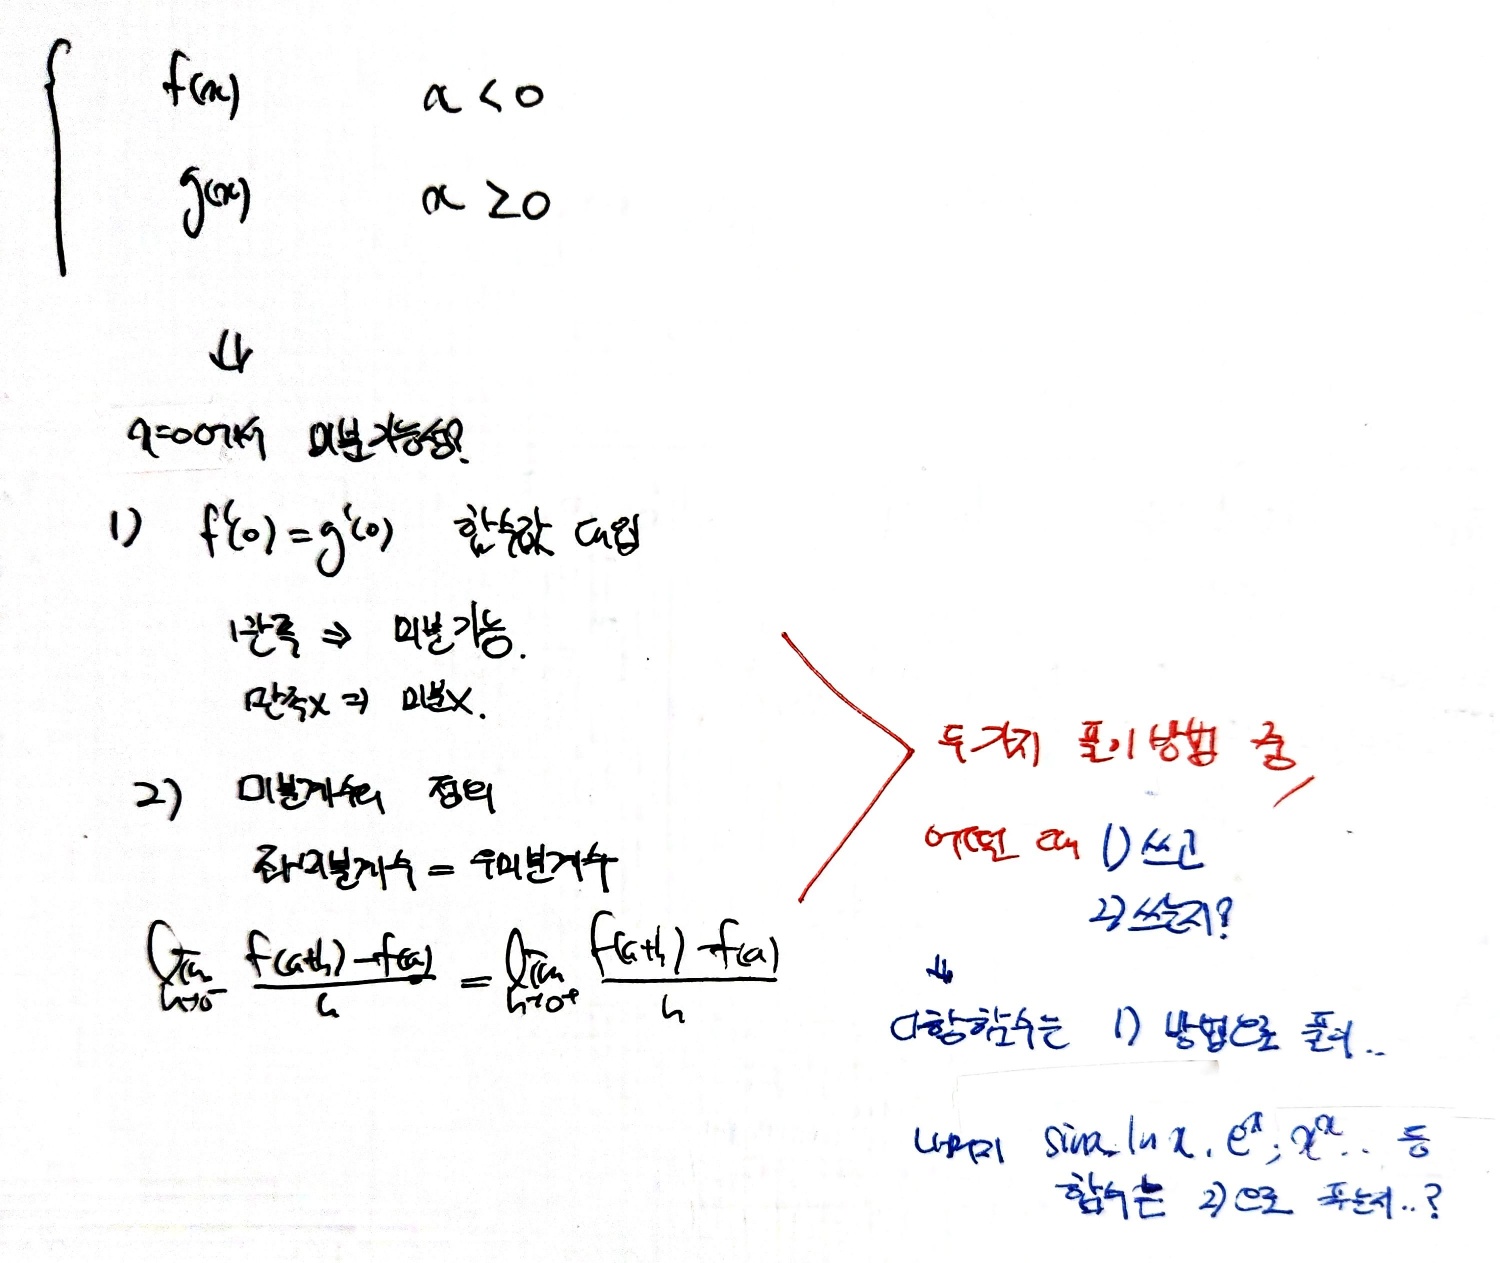 f(x) x < 0
g(x) x ≥ 0
⇓
x=0에서 미분가능성?
1) f'(0) = g'(0) 함수값 대입
만족 ⇒ 미분가능.
만족x ⇒ 미분x.
2) 미분계수의 정의
좌미분계수 = 우미분계수
lim h→0- f(a+h)-f(a) / h = lim h→0+ f(a+h)-f(a) / h
두가지 풀이방법 중
어떤 때 1) 쓰고
2) 쓰는지?
↓
다항함수는 1) 방법으로 풀고..
나머지 sinx. lnx. eˣ, xˣ.. 등
함수는 2)으로 푸는지..?